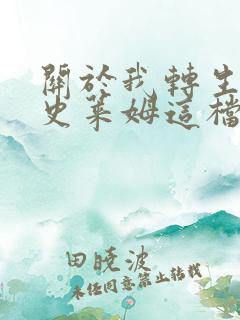 關於我轉生
史萊姆這檔
田曉波
未經同意禁止轉載